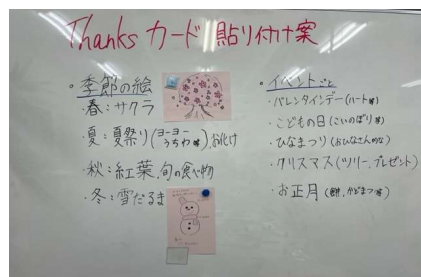 Thanks カード 貼り付け案
・季節の絵
・春：サクラ
・夏：夏祭り(ヨーヨー うちわ 等)お化け
・秋：紅葉、旬の食べ物
・冬：雪だるま
・イベントごと
・バレンタインデー(ハート等)
・こどもの日(こいのぼり等)
・ひなまつり(おひなさん的な)
・クリスマス(ツリー、プレゼント)
・お正月(餅、かどまつ等)